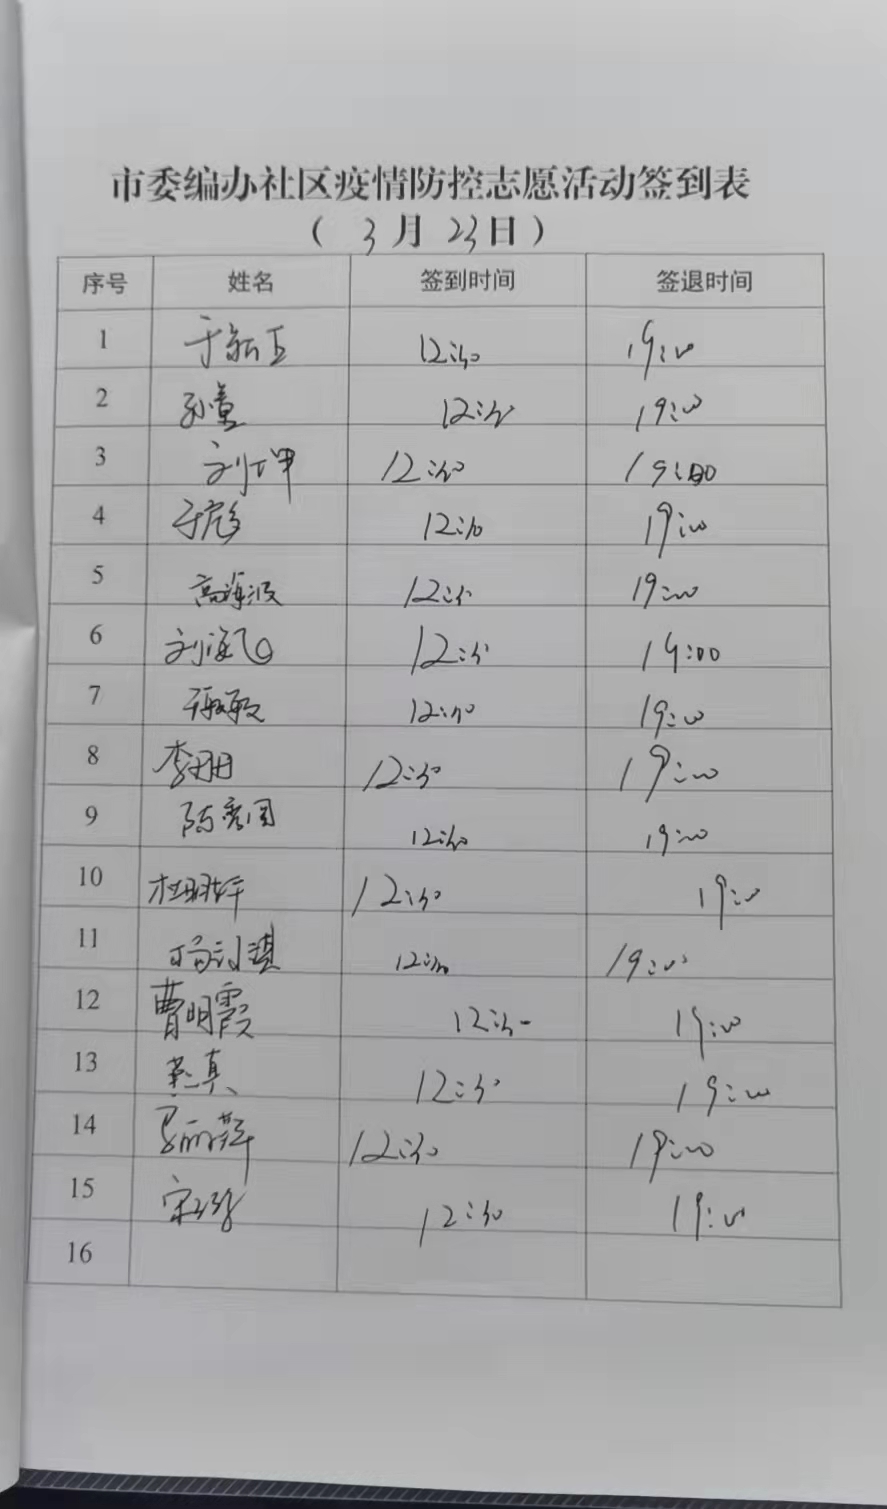 市委编办社区疫情防控志愿活动签到表
( 3月23日 )
序号 姓名 签到时间 签退时间
1 12:30 19:00
2 孙董 12:30 19:00
3 刘坤 12:30 19:00
4 于彪 12:30 19:00
5 高海波 12:30 19:00
6 刘海飞 12:30 19:00
7 12:30 19:00
8 李丹丹 12:30 19:00
9 陈秀国 12:30 19:00
10 12:30 19:00
11 12:30 19:00
12 曹明霞 12:30 19:00
13 12:30 19:00
14 12:30 19:00
15 12:30 19:00
16